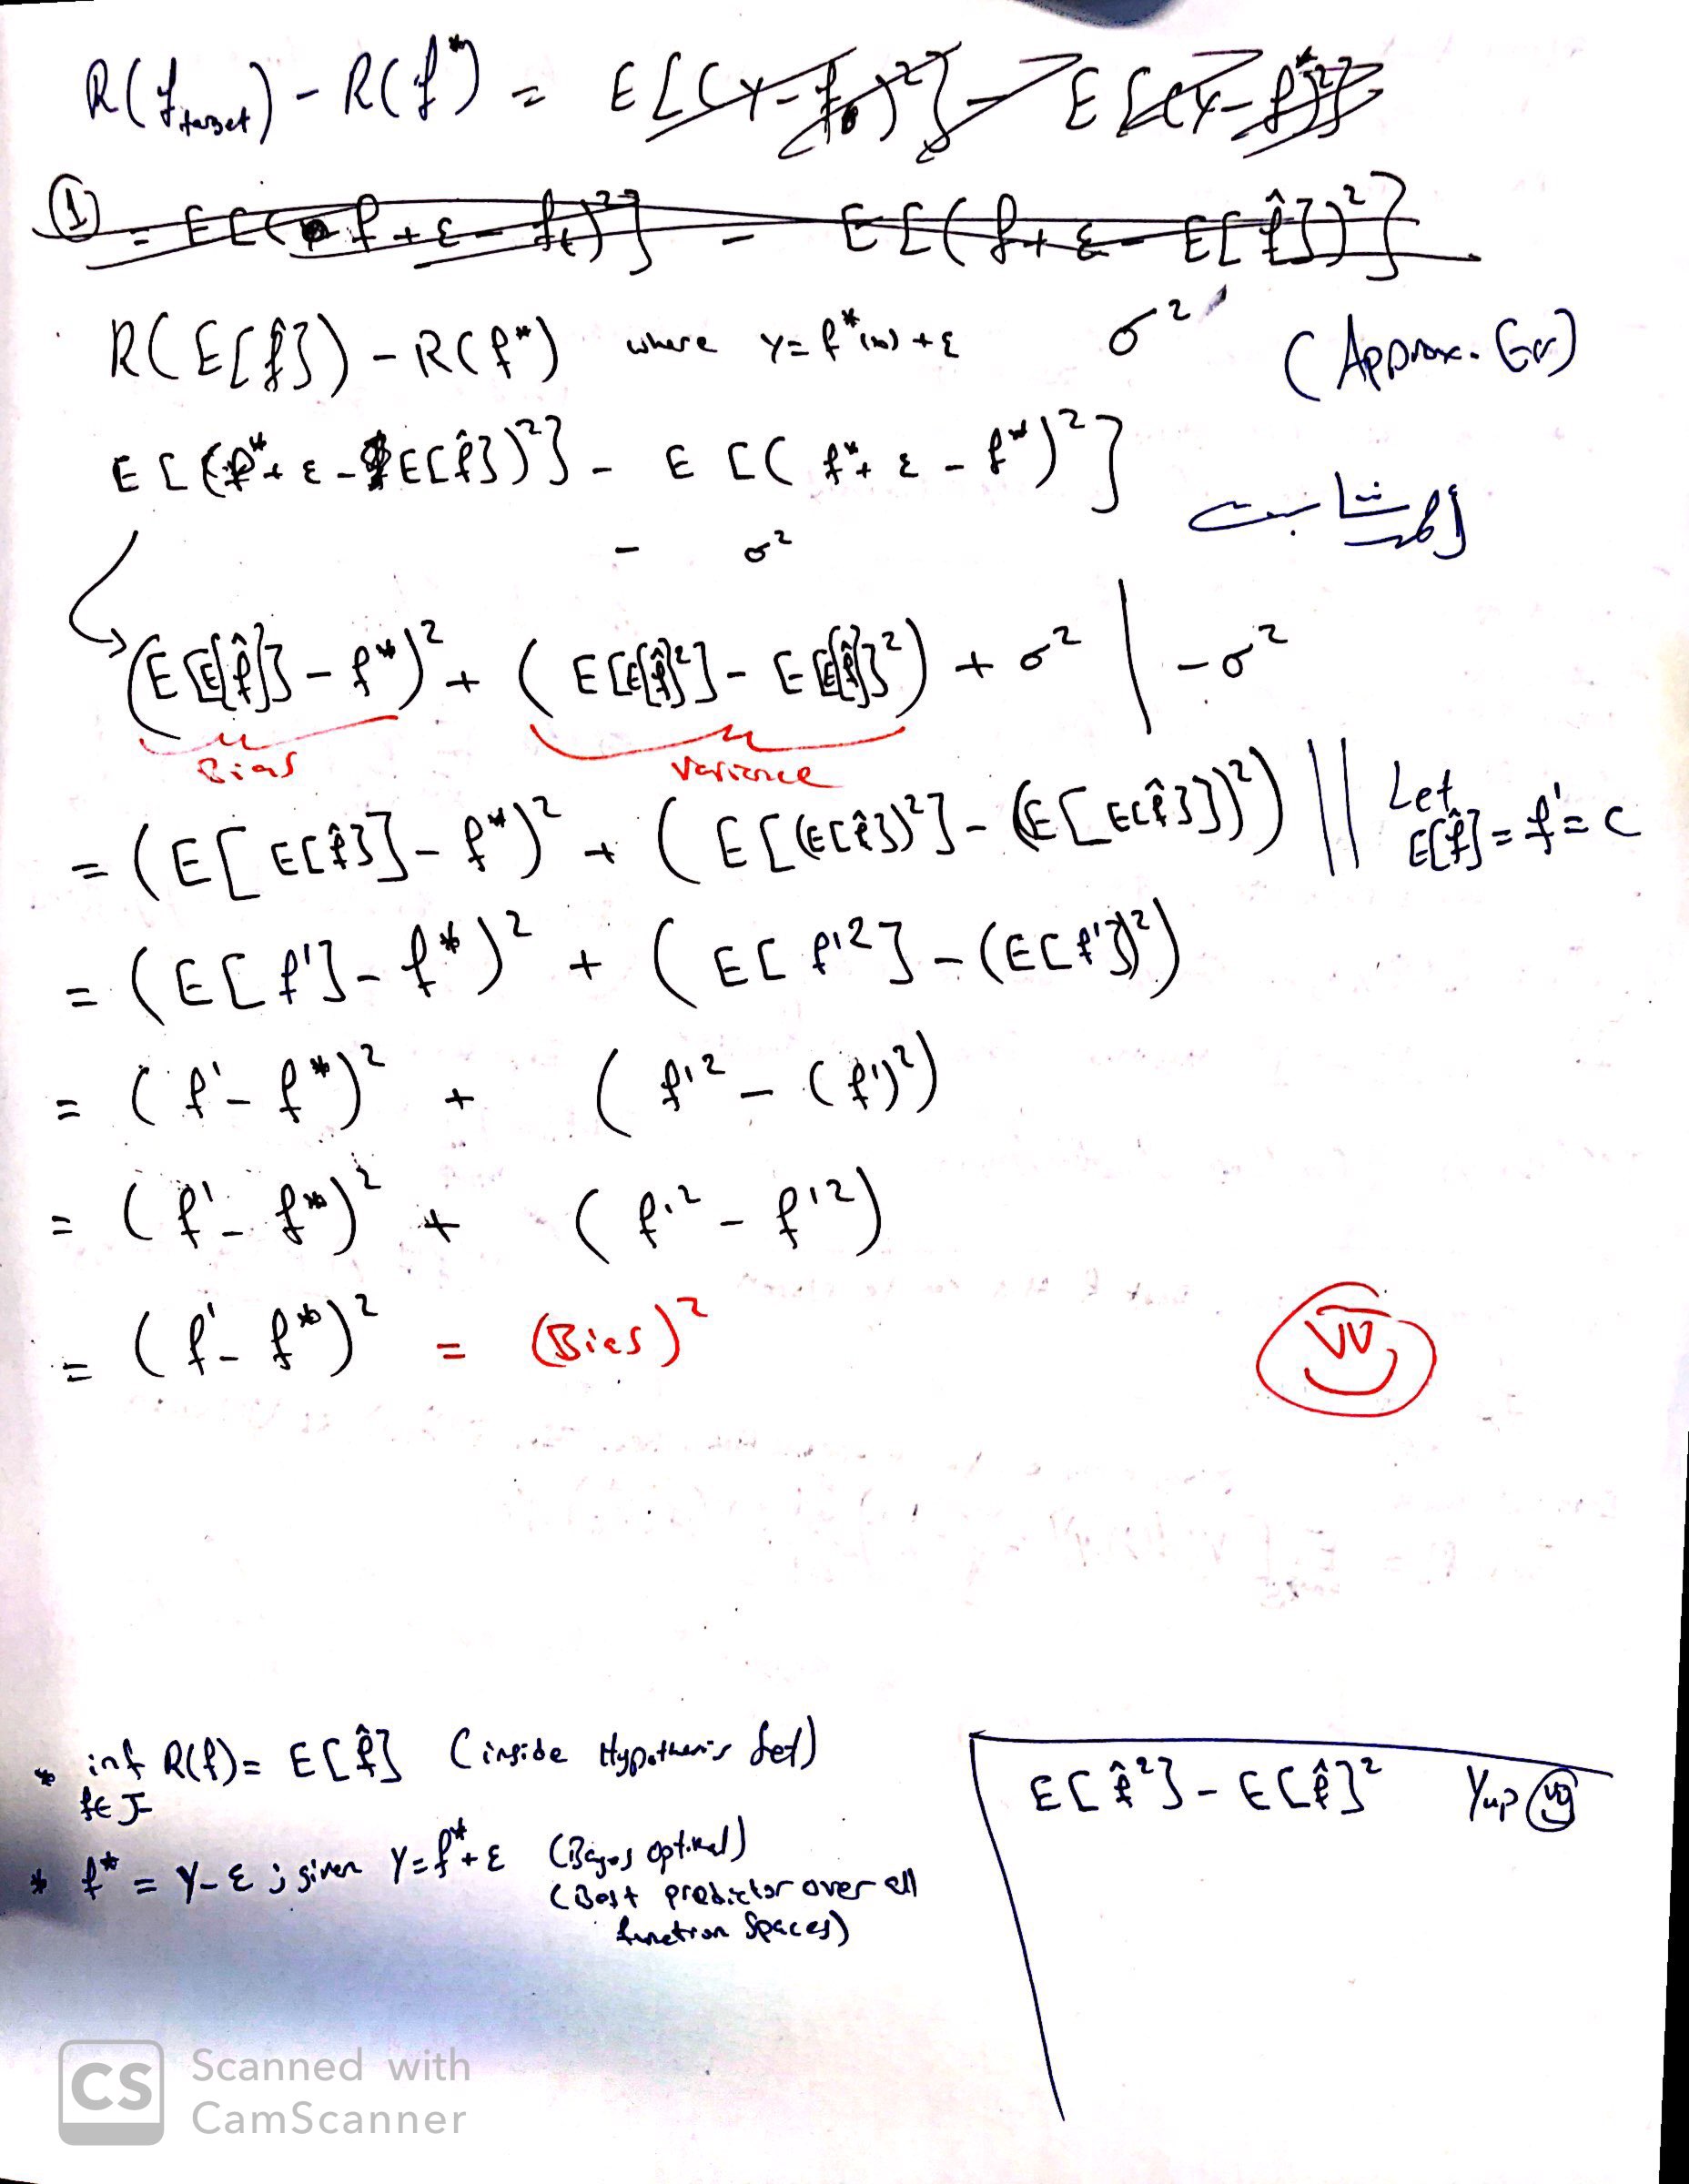 R(f_target) - R(f*) = E[(Y-f_t)²] - E[(Y-f*)²]
① = E[(f+ε-f_t)²] - E[(f+ε-E[f̂])²]
R(E[f̂]) - R(f*) where Y=f*(x)+ε σ² (Approx. Err)
E[(f*+ε-E[f̂])²] - E[(f*+ε-f*)²]
- σ²
(E[E[f̂]]-f*)² + (E[E[f̂]²]-E[E[f̂]]²) + σ² | -σ²
Bias Variance
= (E[E[f̂]]-f*)² + (E[(E[f̂])²]-(E[E[f̂]])²) || Let E[f̂]=f'=c
= (E[f']-f*)² + (E[f'²]-(E[f'])²)
= (f'-f*)² + (f'²-(f')²)
= (f'-f*)² + (f'²-f'²)
= (f'-f*)² = (Bias)²
* inf R(f)= E[f̂] (inside Hypothesis Set)
f∈F
* f* = Y-ε ; given Y=f*+ε (Bayes optimal)
(Best predictor over all
function Spaces)
E[f̂²]-E[f̂]² Yup
CS Scanned with
CamScanner